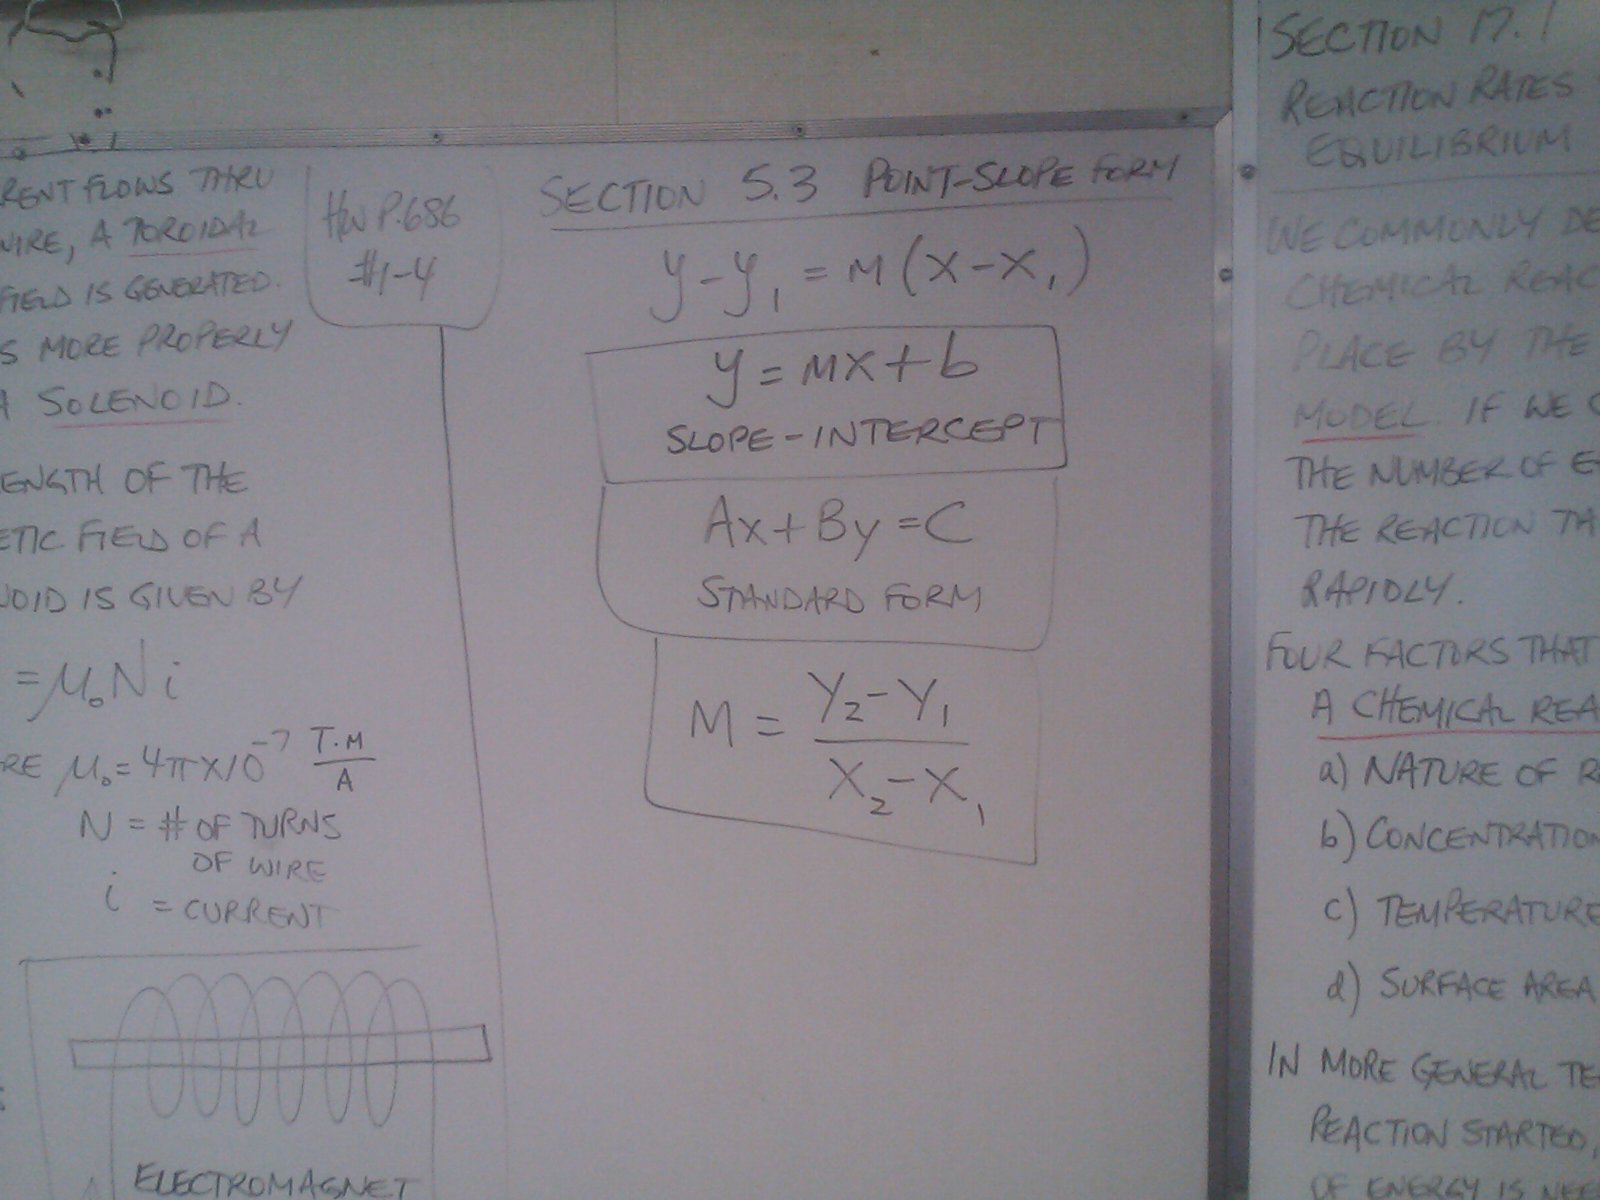 RENT FLOWS THRU
WIRE, A TOROIDAL
FIELD IS GENERATED.
S MORE PROPERLY
A SOLENOID.
ENGTH OF THE
ETIC FIELD OF A
NOID IS GIVEN BY
= μ₀Ni
RE μ₀ = 4π×10⁻⁷ T·M/A
N = # OF TURNS
OF WIRE
i = CURRENT
ELECTROMAGNET
HW P.686
#1-4
SECTION 5.3 POINT-SLOPE FORM
y-y₁ = M(X-X₁)
y = MX+b
SLOPE-INTERCEPT
Ax+By=C
STANDARD FORM
M = Y₂-Y₁
X₂-X₁
SECTION 17.1
REACTION RATES
EQUILIBRIUM
WE COMMONLY DE
CHEMICAL REAC
PLACE BY THE
MODEL. IF WE
THE NUMBER OF
THE REACTION TA
RAPIDLY.
FOUR FACTORS THAT
A CHEMICAL REA
a) NATURE OF R
b) CONCENTRATION
c) TEMPERATURE
d) SURFACE AREA
IN MORE GENERAL TE
REACTION STARTED,
OF ENERGY IS NEE